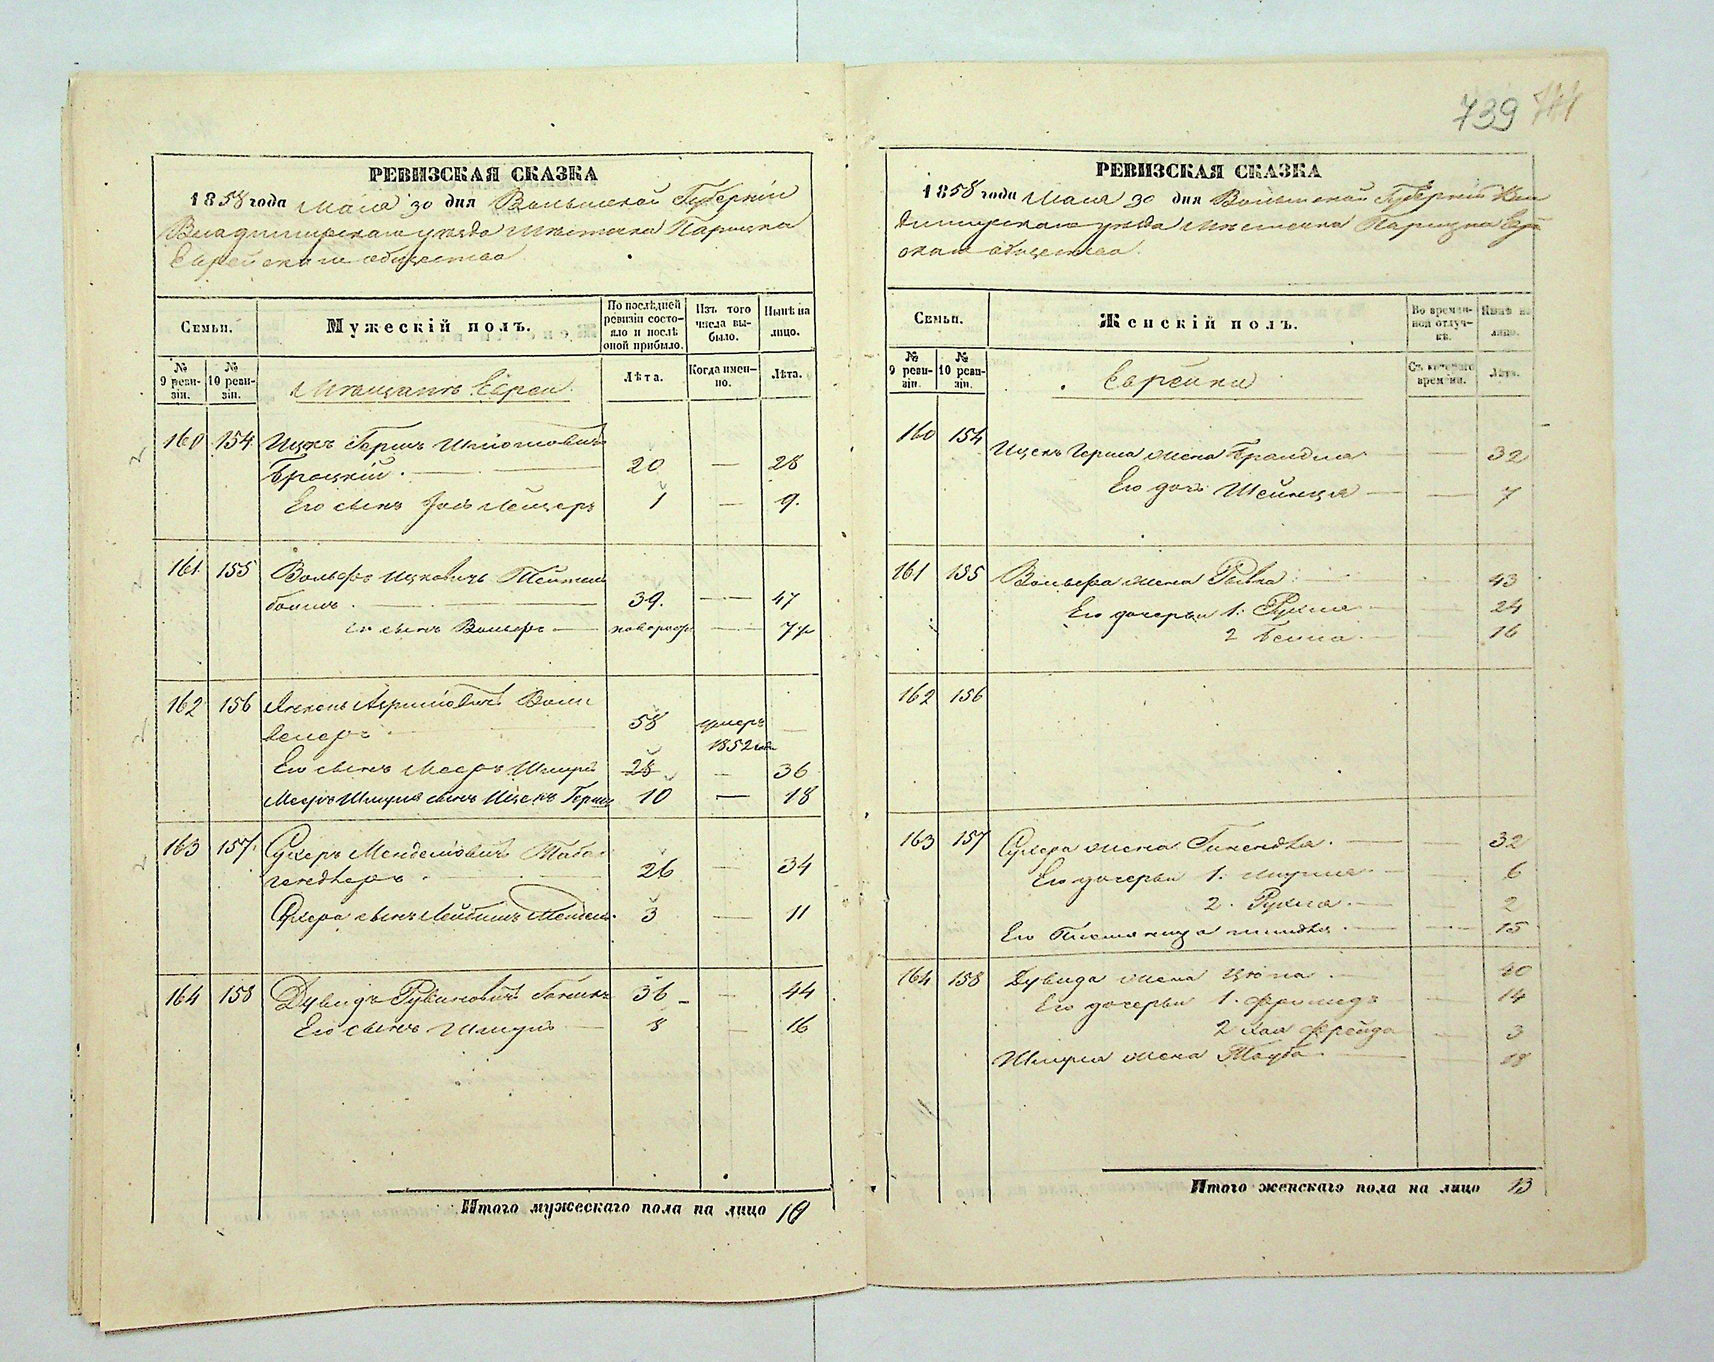 739 741
РЕВИЗСКАЯ СКАЗКА
1858 года Мая 30 дня Волынской Губерніи
Владимирскаго уезда местечка Порицка
Еврейскаго общества
Семьи.
Мужескій полъ.
По послѣдней ревизіи состояло и послѣ оной прибыло.
Изъ того числа выбыло.
Нынѣ на лицо.
№ 9 ревизіи.
№ 10 ревизіи.
Мещане Евреи
Лѣта.
Когда именно.
Лѣта.
160 154 Ицкъ Герш
Бродскій. 20 — 28
Его сынъ Лейзеръ 1 — 9.
161 155 Вольфъ Ицковичъ Тейтель
баумъ. 39. — 47
Его сынъ новорож — 7
162 156
58 умеръ —
1852
Его сынъ Мееръ Шмуль 28 — 36
Меера Шмуля сынъ Ицекъ Герш 10 — 18
163 157 Сухеръ Менделіовичъ
26 — 34
Сухера сынъ Лейбишъ Мендель 3 — 11
164 158 Дувидъ Рувиновичъ 36 — 44
Его сынъ Шмуль 8 — 16
Итого мужескаго пола на лицо 10
РЕВИЗСКАЯ СКАЗКА
1858 года Мая 30 дня Волынской Губерніи Вла
димирскаго уезда местечка Порицка Еврей
скаго общества.
Семьи.
Женскій полъ.
Во временной отлучкѣ.
Нынѣ на лицо.
№ 9 ревизіи.
№ 10 ревизіи.
Еврейки
Съ котораго времени.
Лѣта.
160 154 Ицекъ Герша жена Брандля — 32
Его дочь Шейнця — — 7
161 155 Вольфа жена Рывка 43
Его дочери 1. Рухля — 24
2 Бейла — 16
162 156
163 157 Сухера жена — — 32
Его дочери 1. — 6
2. Рухля — 2
Его племяница — — 15
164 158 Дувида жена Ципа 40
Его дочери 1. — 14
2 Хая Фрейда 3
Шмуля жена Тауба 18
Итого женскаго пола на лицо 13